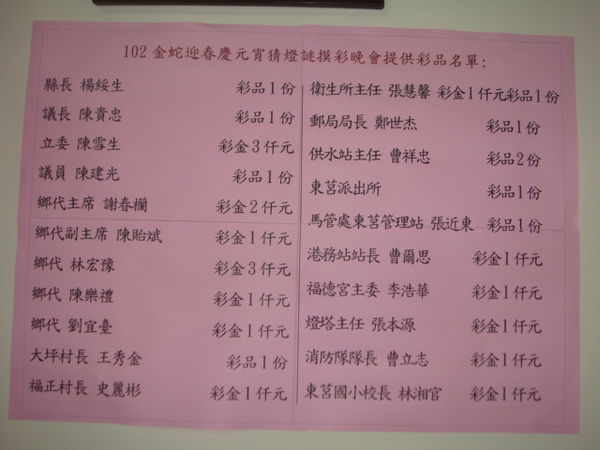 102金蛇迎春慶元宵猜燈謎摸彩晚會提供彩品名單:
縣長 楊綏生 彩品1份
議長 陳貴忠 彩品1份
立委 陳雪生 彩金3仟元
議員 陳建光 彩品1份
鄉代主席 謝春欗 彩金2仟元
鄉代副主席 陳貽斌 彩金1仟元
鄉代 林宏豫 彩金3仟元
鄉代 陳樂禮 彩金1仟元
鄉代 劉宜臺 彩金1仟元
大坪村長 王秀金 彩品1份
福正村長 史麗彬 彩金1仟元
衛生所主任 張慧馨 彩金1仟元彩品1份
郵局局長 鄭世杰 彩品1份
供水站主任 曹祥忠 彩品2份
東莒派出所 彩品1份
馬管處東莒管理站 張近東 彩品1份
港務站站長 曹爾思 彩金1仟元
福德宮主委 李浩華 彩金1仟元
燈塔主任 張本源 彩金1仟元
消防隊隊長 曹立志 彩金1仟元
東莒國小校長 林湘官 彩金1仟元